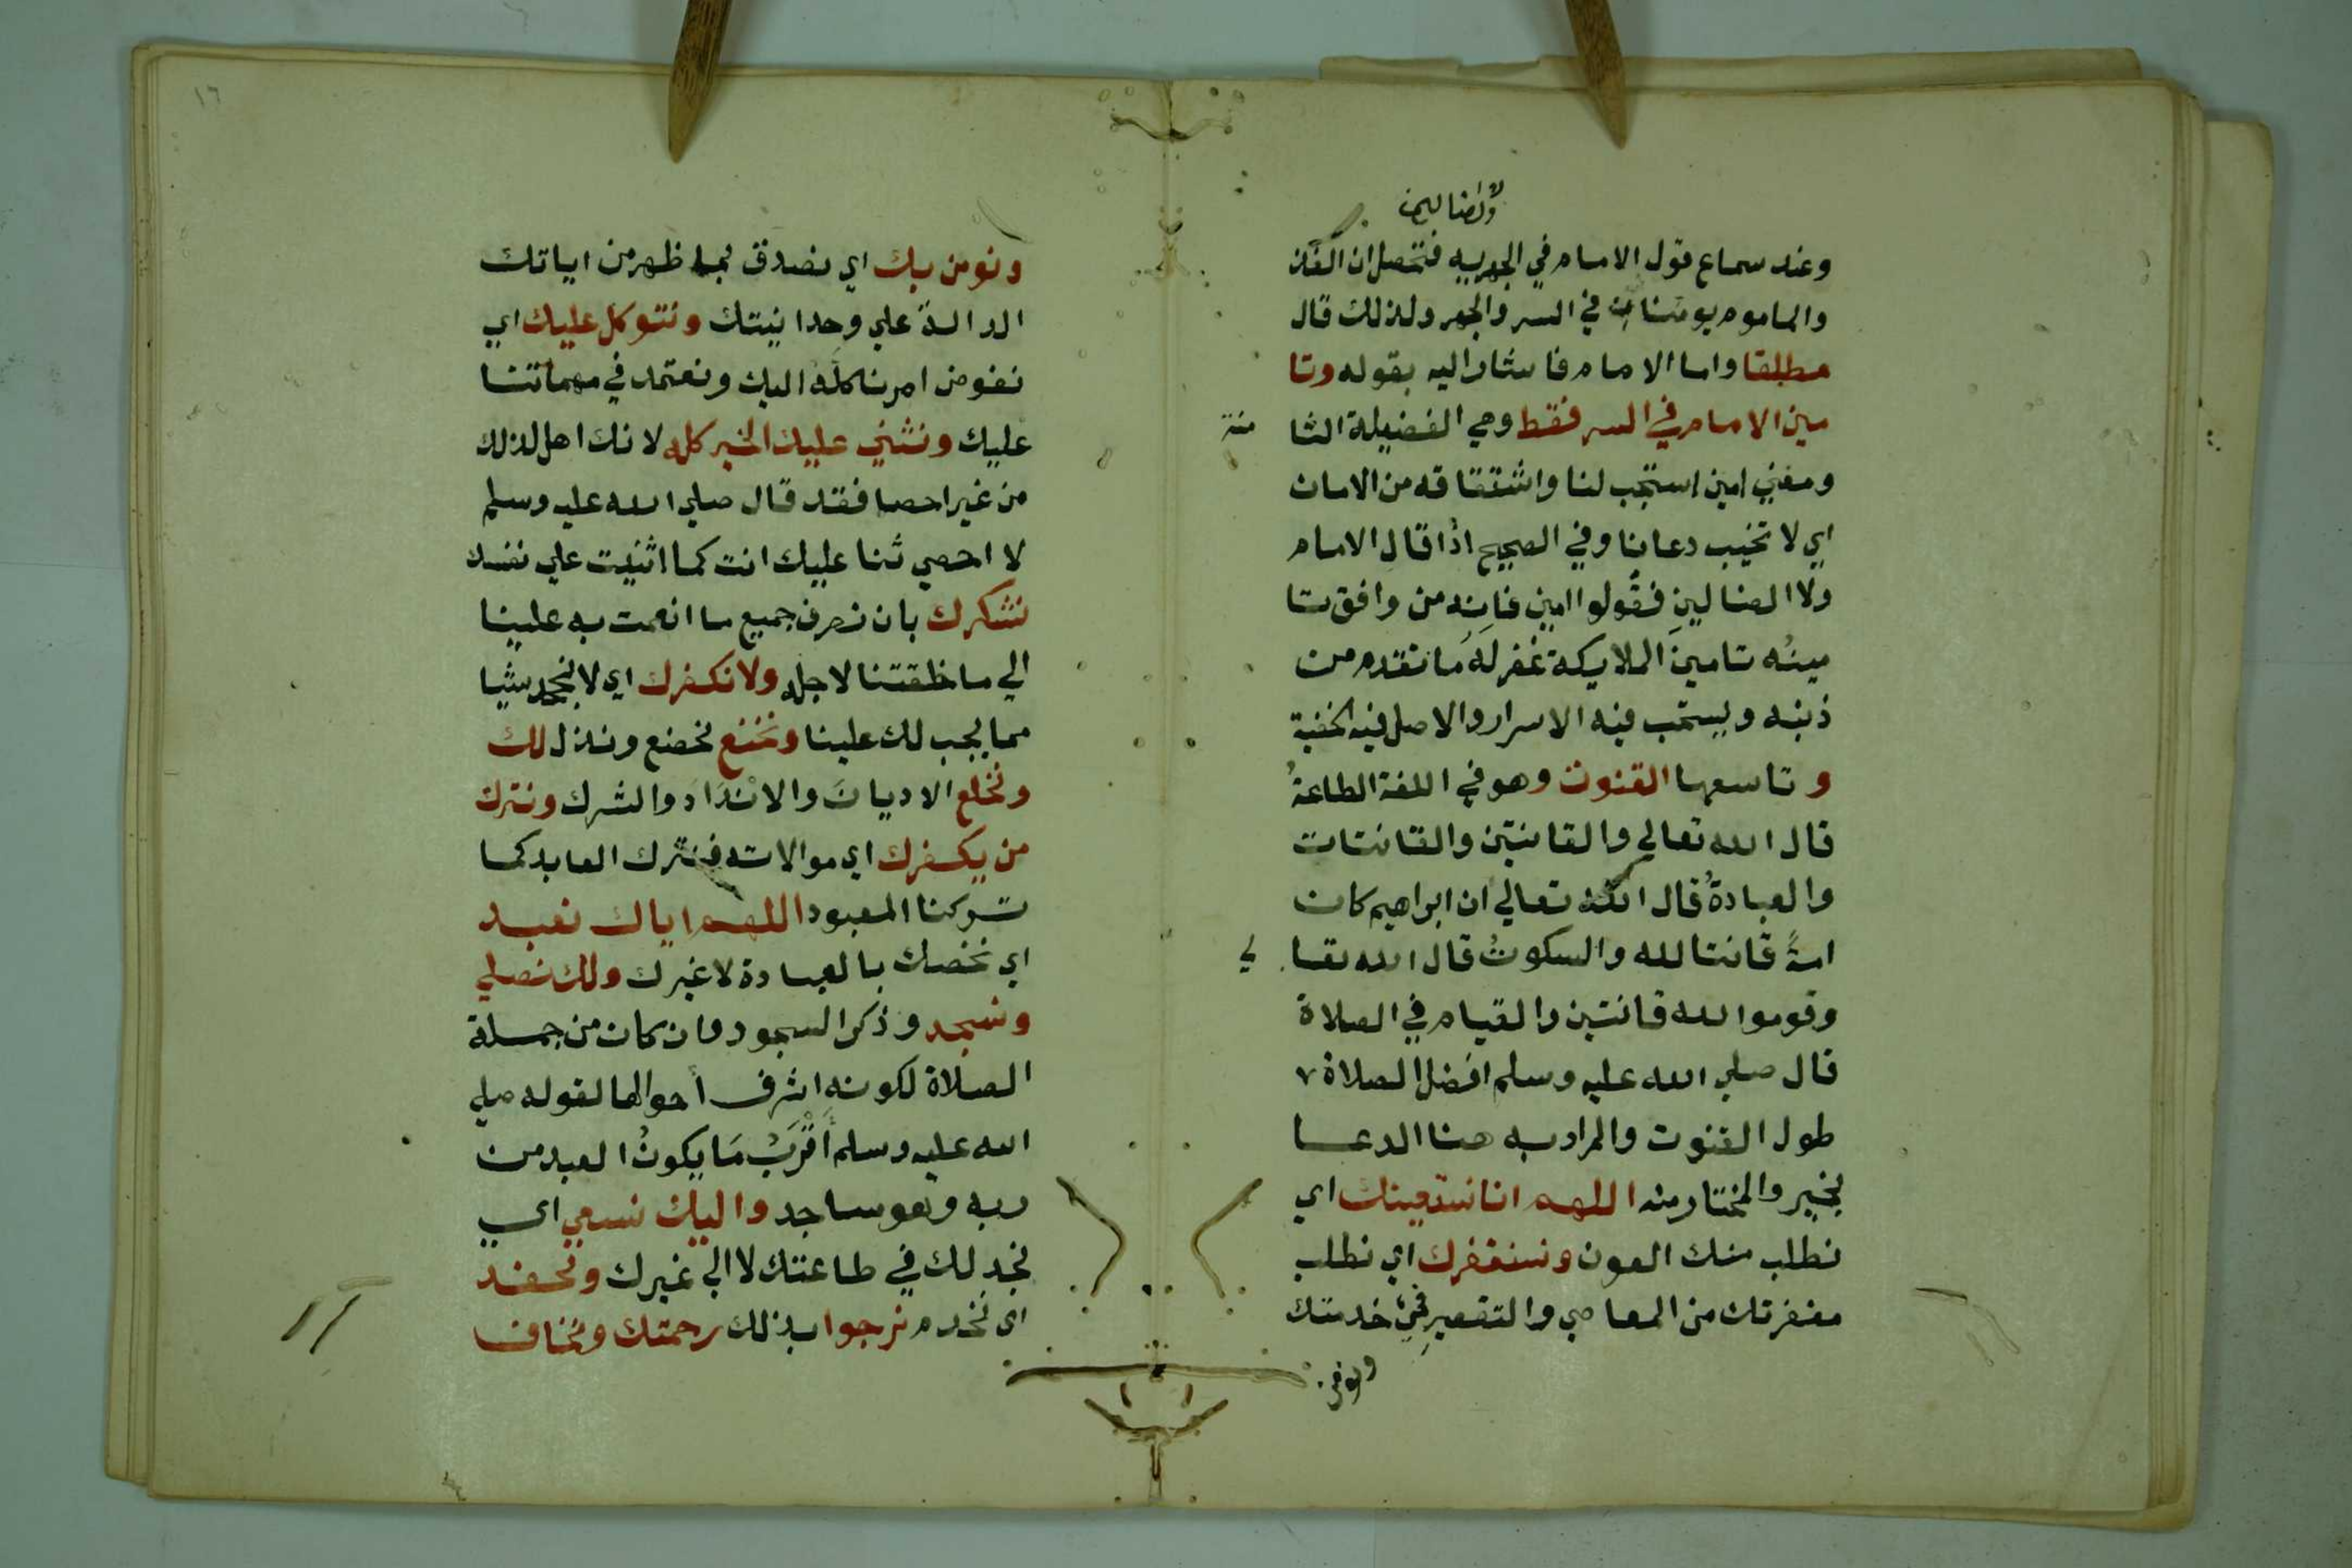 ولا الضالين
وعند سماع قول الامام في الجهريه فتحصل ان الفذ
والماموم يومنان في السر والجهر ولذلك قال
مطلقا واما الامام فاشار اليه بقوله وتا
مين الامام في السر فقط وهي الفضيلة الثا
منة
ومعني امين استجب لنا واشتقاقه من الامان
اي لا تخيب دعانا وفي الصحيح اذا قال الامام
ولا الضالين فقولوا امين فانه من وافق تا
مينه تامين الملايكة غفر له ما تقدم من
ذنبه ويستحب فيه الاسرار والاصل فيه الخفية
وتاسعها القنوت وهو في اللغة الطاعة
قال الله تعالي والقانتين والقانتات
والعبادة قال الله تعالي ان ابراهيم كان
امة قانتا لله والسكوت قال الله تعا
لي
وقوموا لله قانتين والقيام في الصلاة
قال صلي الله عليه وسلم افضل الصلاة
طول القنوت والمراد به هنا الدعا
بخير والمختار منه اللهم انا نستعينك اي
نطلب منك العون ونستغفرك اي نطلب
مغفرتك من المعاصي والتقصير في خدمتك
ونومن بك اي نصدق بما ظهر من اياتك
الدالة علي وحدانيتك ونتوكل عليك اي
نفوض امرنا كله اليك ونعتمد في مهماتنا
عليك ونثني عليك الخير كله لانك اهل لذلك
من غير احصا فقد قال صلي الله عليه وسلم
لا احصي ثنا عليك انت كما اثنيت علي نفسك
نشكرك بان نصرف جميع ما انعمت به علينا
الي ما خلقتنا لاجله ولا نكفرك اي لا نجحد شيا
مما يجب لك علينا ونخنع نخضع ونذل لك
ونخلع الاديان والانداد والشرك ونترك
من يكفرك اي موالاته فنترك العابد كما
تركنا المعبود اللهم اياك نعبد
اي نخصك بالعبادة لا غيرك ولك نصلي
ونسجد وذكر السجود وان كان من جملة
الصلاة لكونه اشرف أحوالها لقوله صلي
الله عليه وسلم أَقْرَبُ مَا يكونُ العبد من
ربه وهو ساجد واليك نسعي اي
نجد لك في طاعتك لا الي غيرك ونحفد
اي نخدم نرجوا بذلك رحمتك ونخاف
١٦